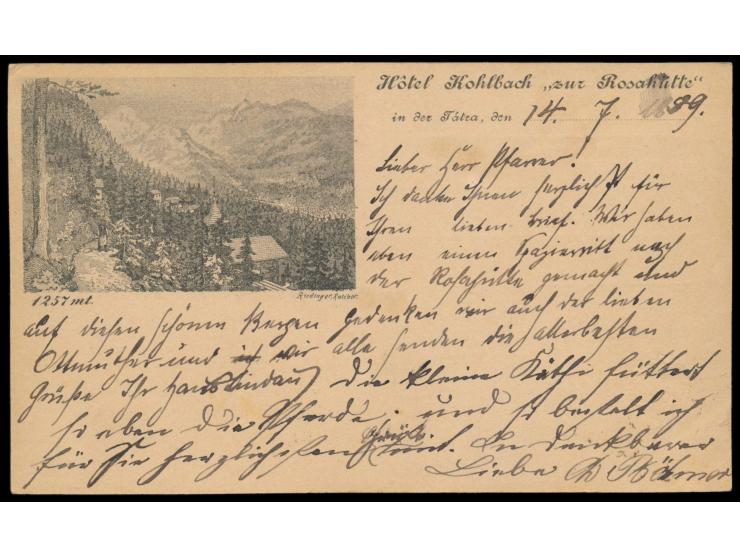 Hôtel Kohlbach „zur Rosahütte“
in der Tátra, den 14. 7. 1889.
Lieber Herr Pfarrer!
Ich danke Ihnen herzlichst für
Ihren lieben Brief. Wir haben
eben einen Spazierritt nach
der Rosahütte gemacht und
1257 mt.
Riedinger, Ratibor.
auf diesen schönen Bergen gedenken wir auch der lieben
und wir alle senden die allerbesten
Grüße Ihr Hans Lindau) Die kleine Käthi füttert
so eben die Pferde. und so bestelt ich
für Sie herzlichsten mit. In dankbarer
Liebe